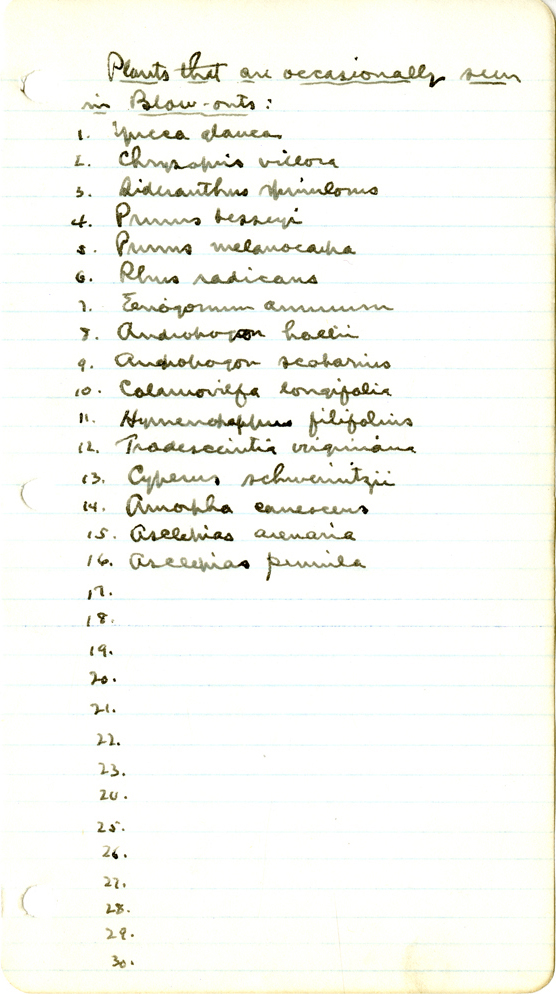 Plants that are occasionally seen
in Blow-outs:
1. Yucca glauca
2. Chrysopsis villosa
3. Sideranthus spinulosus
4. Prunus besseyi
5. Prunus melanocarpa
6. Rhus radicans
7. Eriogonum annuum
8. Andropogon hallii
9. Andropogon scoparius
10. Calamovilfa longifolia
11. Hymenopappus filifolius
12. Tradescantia virginiana
13. Cyperus schweinitzii
14. Amorpha canescens
15. Asclepias arenaria
16. Asclepias pumila
17.
18.
19.
20.
21.
22.
23.
24.
25.
26.
27.
28.
29.
30.